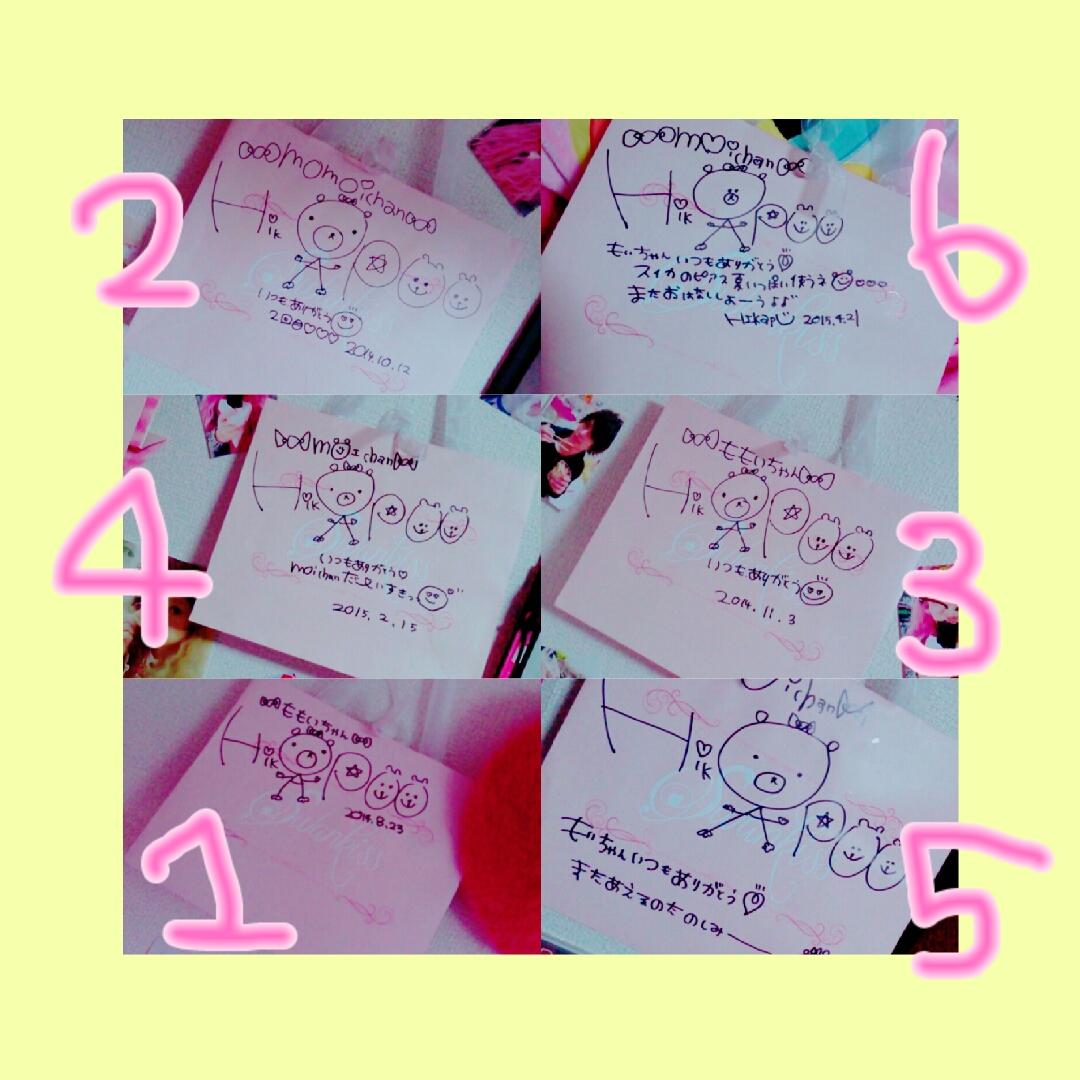 2
momoichan
Hik
いつもありがとう
2回目♡♡♡
2014.10.12
6
moichan
Hik
もいちゃん いつもありがとう
スイカのピアス夏いっぱい使うネ
またおはなししよーうよ
Hikapu 2015.4.21
4
moichan
Hik
いつもありがとう♡
moichanだേいすきっ
2015.2.15
3
ももいちゃん
Hik
いつもありがとう
2014.11.3
1
ももいちゃん
Hik
2014.8.23
5
ichan
Hik
もいちゃんいつもありがとう
またあえるのたのしみー